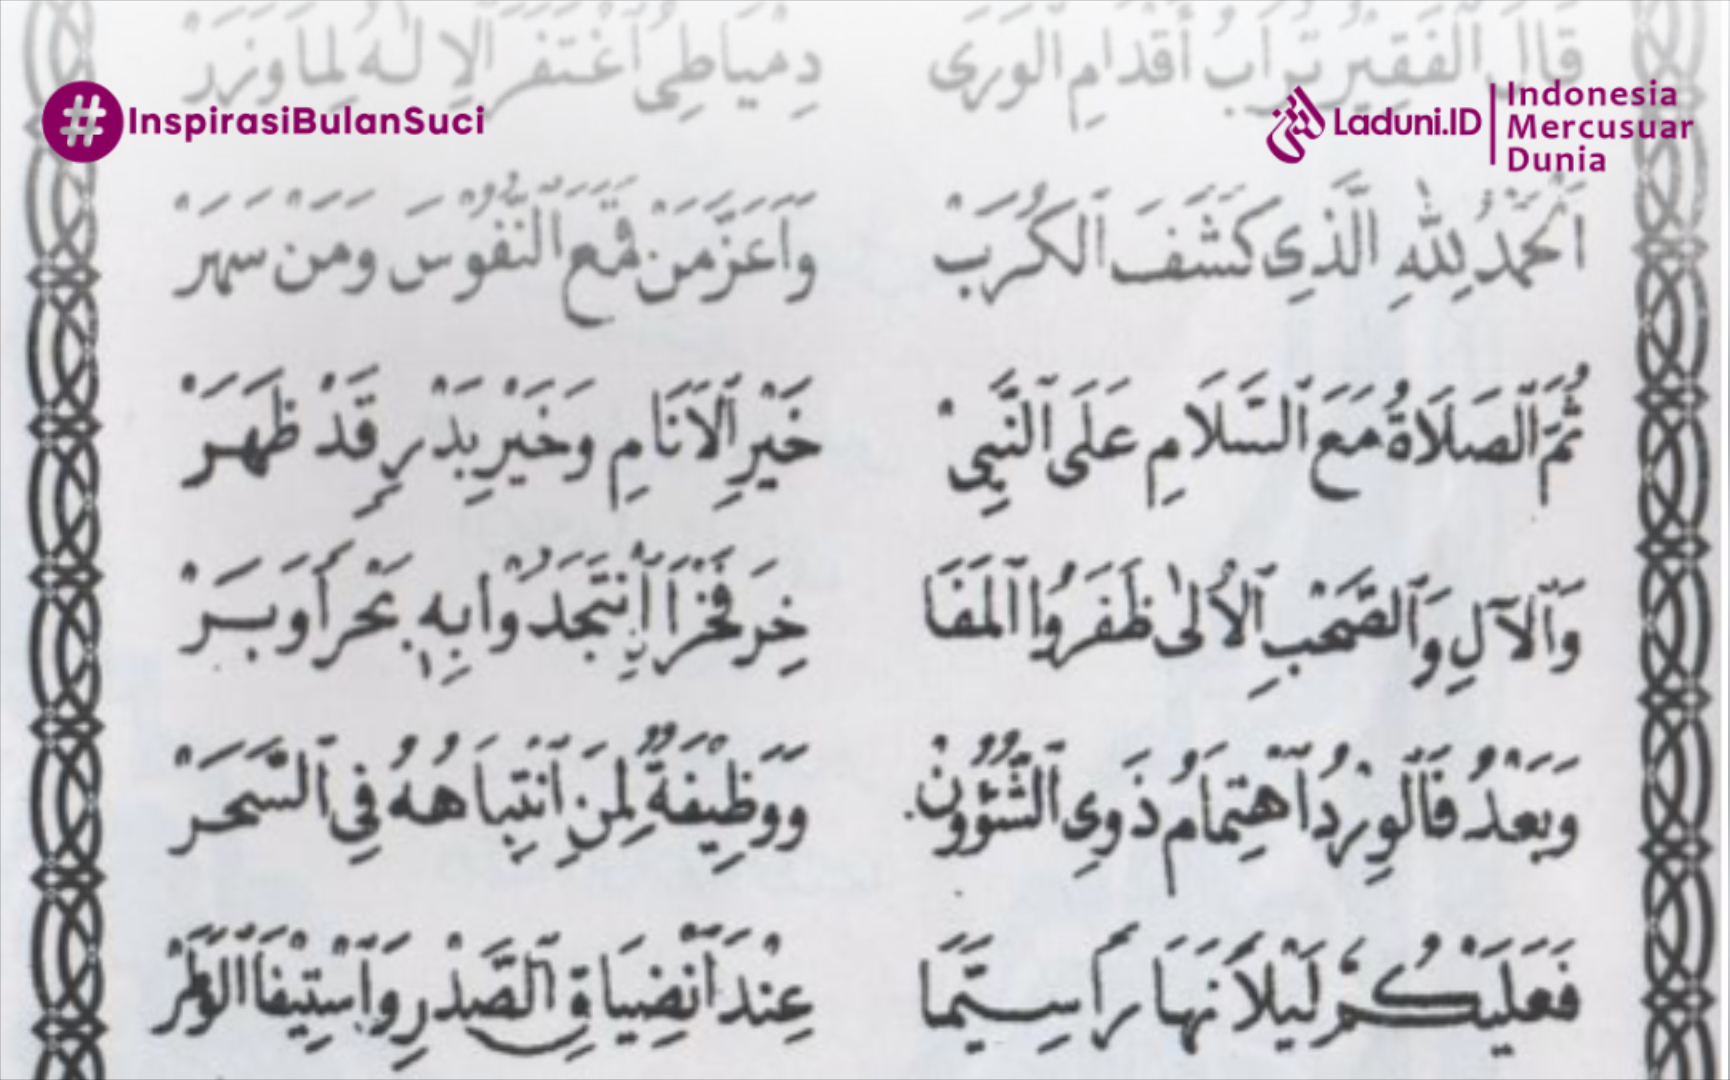 قَالَ الْفَقِيْرُ تُرَابُ أَقْدَامِ الْوَرَى دِمْيَاطِى اُغْتُفِرَ الْإِلٰهُ لِمَا وَزَرْ
#InspirasiBulanSuci
Laduni.ID
Indonesia
Mercusuar
Dunia
اَلْحَمْدُ لِلّٰهِ الَّذِي كَشَفَ الْكُرَبْ وَأَعَزَّ مَنْ قَمَعَ النُّفُوْسَ وَمَنْ سَهَرْ
ثُمَّ الصَّلَاةُ مَعَ السَّلَامِ عَلَى النَّبِىْ خَيْرِ الْأَنَامِ وَخَيْرِ بَدْرٍ قَدْ ظَهَرْ
وَالْآلِ وَالصَّحْبِ الْأُلىٰ ظَفَرُوا الْمَفَا خِرَ فَخْرًا إِنْتَجَدُوْا بِهِ بَحْرًا وَبَرْ
وَبَعْدُ فَالْوِرْدُ اهْتِمَامُ ذَوِى الشُّؤُوْنْ وَوَظِيْفَةٌ لِمَنِ انْتِبَاهُهُ فِي السَّحَرْ
فَعَلَيْكُمُ لَيْلًا نَهَارًا سِيَّمَا عِنْدَ انْضِيَاقِ الصَّدْرِ وَاسْتِيْفَا الْوَطَرْ